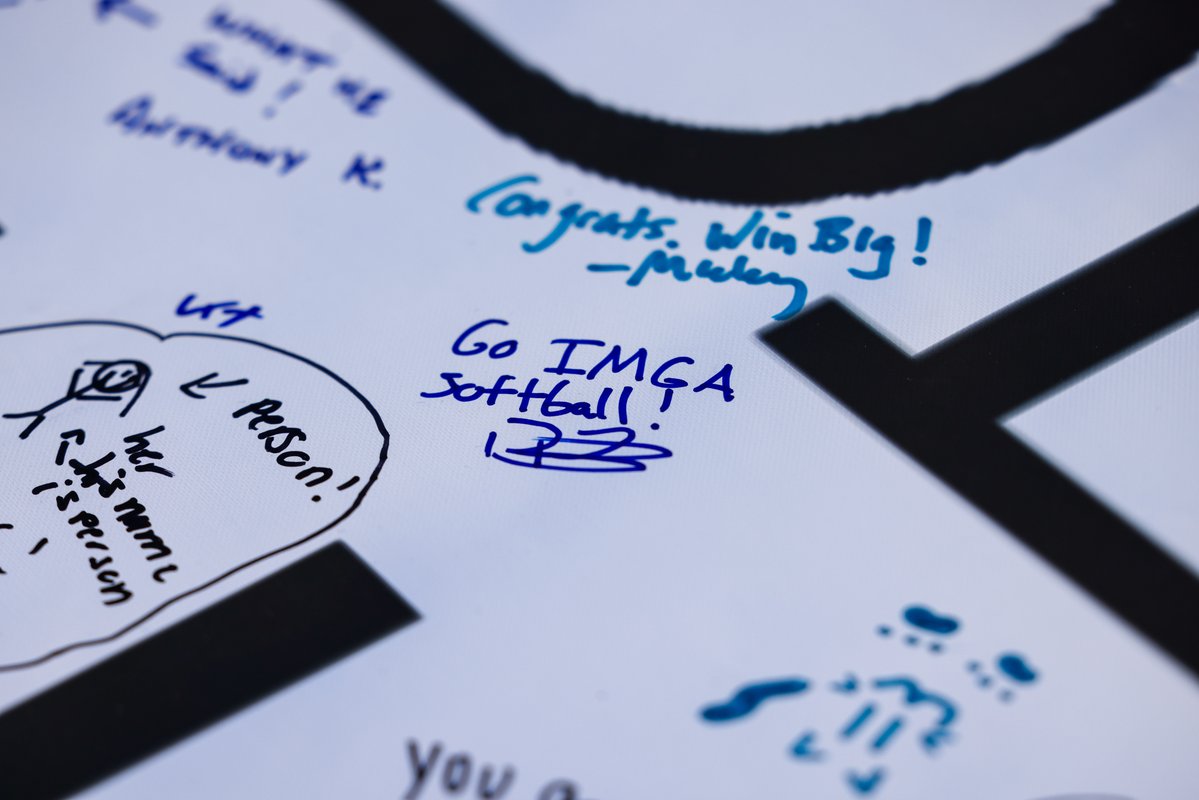 WHAT HE
SAID!
ANTHONY K.
Congrats. Win Big!
Go IMGA
Softball!
← Person!
her
his name
is person
you a